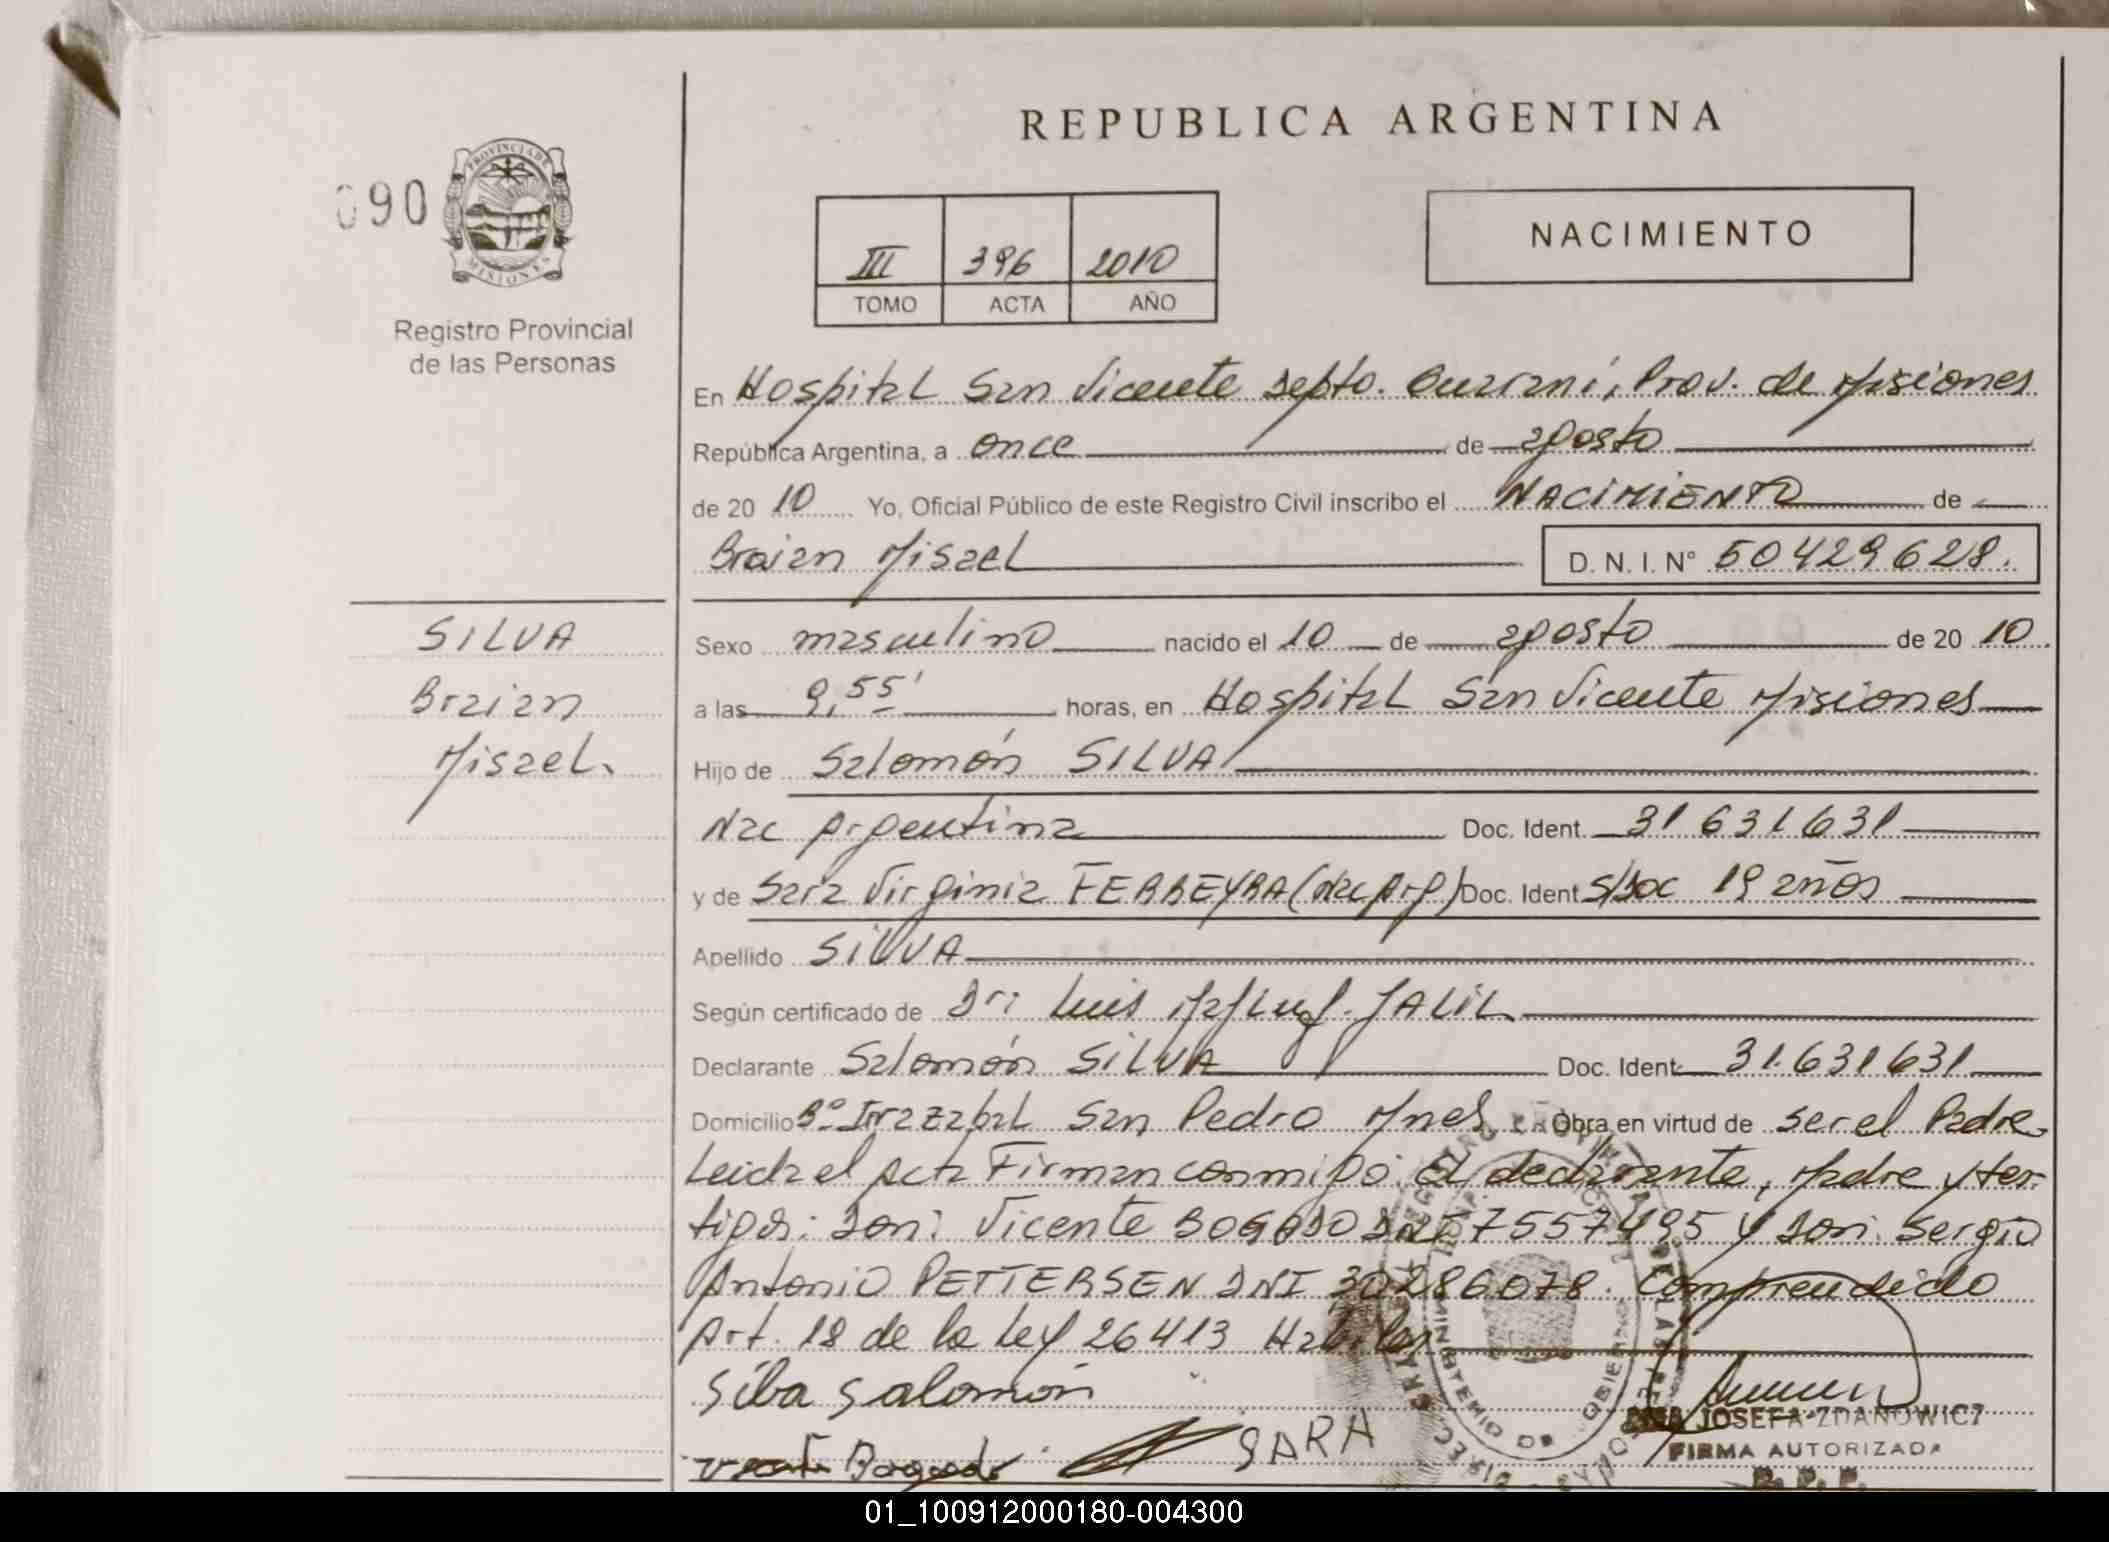 REPUBLICA ARGENTINA
090
PROVINCIA DE
MISIONES
Registro Provincial
de las Personas
III 396 2010
TOMO ACTA AÑO
NACIMIENTO
En Hospital San Vicente Depto. Guaraní, Prov. de Misiones
República Argentina, a once de agosto
de 20 10 Yo, Oficial Público de este Registro Civil inscribo el NACIMIENTO de
Braian Misael D. N. I. N° 50429628.
SILVA
Braian
Misael.
Sexo masculino nacido el 10 de agosto de 20 10
a las 9,55' horas, en Hospital San Vicente Misiones
Hijo de Salomón SILVA
Nac Argentina Doc. Ident. 31 631 631
y de Sara Virginia FERREYRA (Nac Arg) Doc. Ident S/Doc 19 años
Apellido SILVA
Según certificado de Dr: Luis JALIL
Declarante Salomón SILVA Doc. Ident. 31.631631
Domicilio B° Irrazabal San Pedro Mnes. Obra en virtud de ser el Padre
Leida el Acta Firman conmigo: el declarante, Madre y tes-
tigos: Don: Vicente BOGADO DNI 7557495 y Don: Sergio
Antonio PETTERSEN DNI 30286078. Comprendido
Art. 18 de la Ley 26413
Silba Salomón
Bogado SARA
JOSEFA ZDANOWICZ
FIRMA AUTORIZADA
R. P. P.
MINISTERIO DE GOBIERNO
01_100912000180-004300